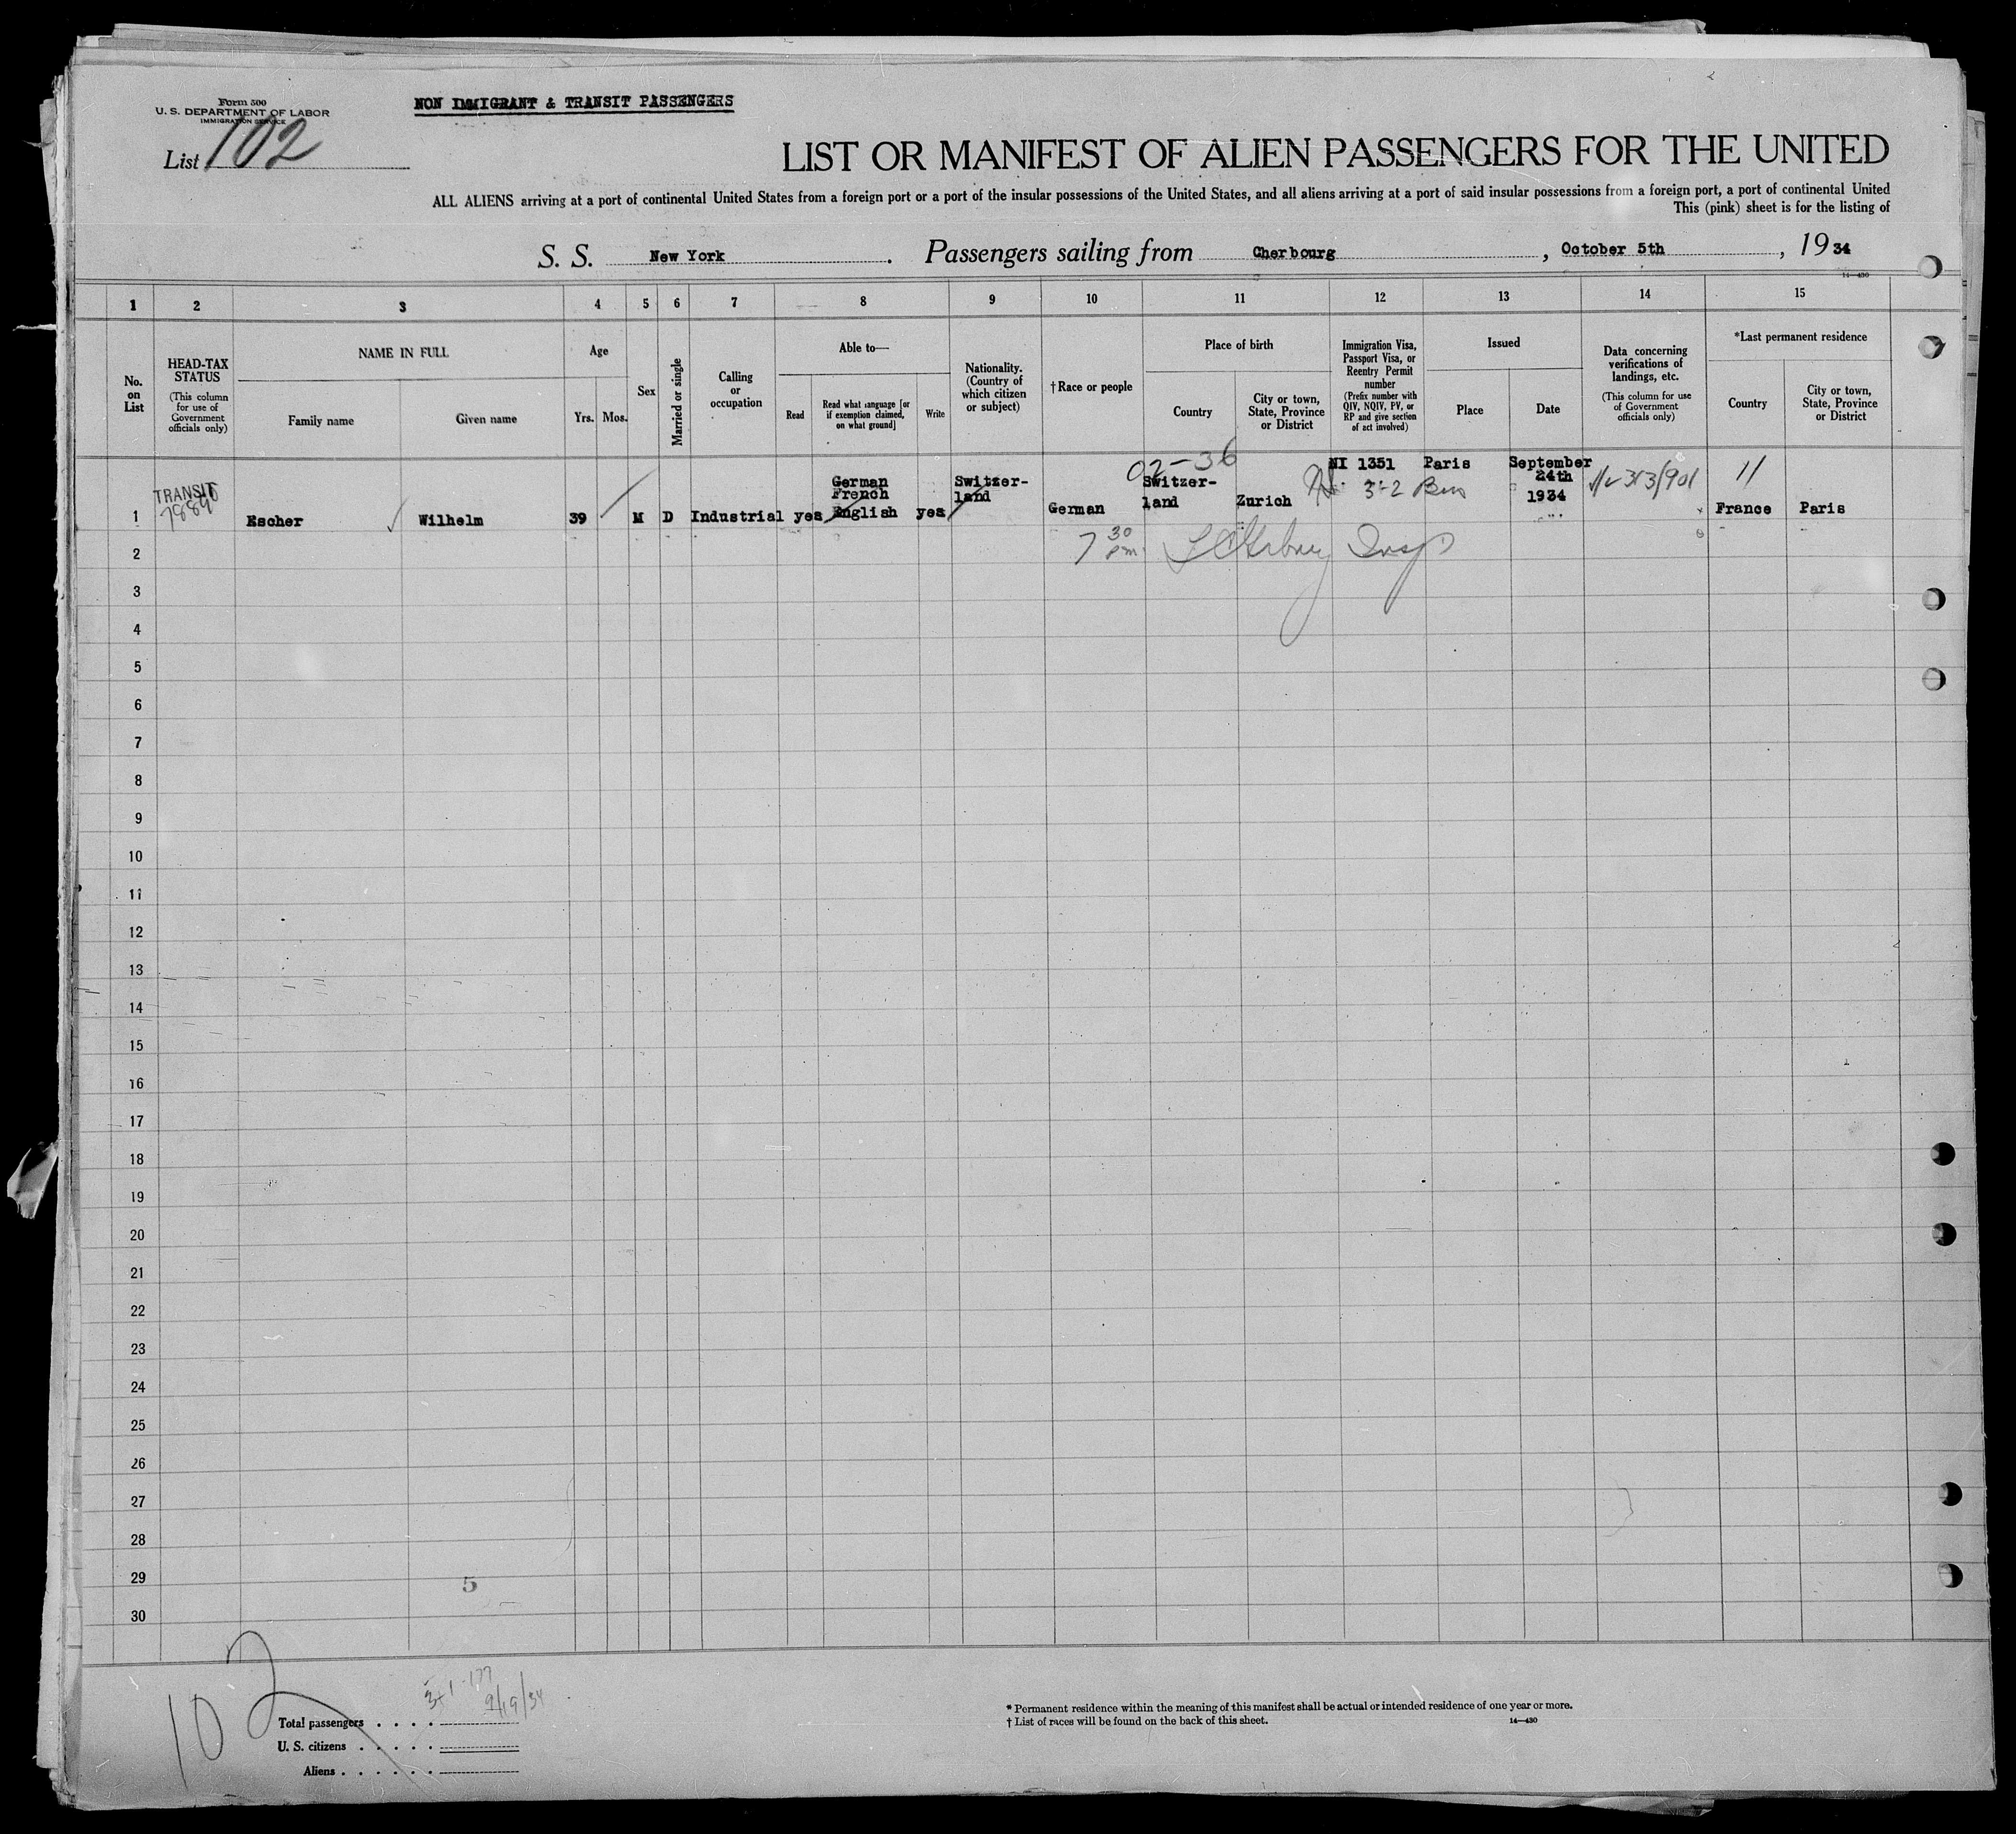 Form 500
U. S. DEPARTMENT OF LABOR
IMMIGRATION SERVICE
NON IMMIGRANT & TRANSIT PASSENGERS
List 102
LIST OR MANIFEST OF ALIEN PASSENGERS FOR THE UNITED
ALL ALIENS arriving at a port of continental United States from a foreign port or a port of the insular possessions of the United States, and all aliens arriving at a port of said insular possessions from a foreign port, a port of continental United
This (pink) sheet is for the listing of
S. S. New York. Passengers sailing from Cherbourg, October 5th, 1934
14—430
1 2 3 4 5 6 7 8 9 10 11 12 13 14 15
No. on List
HEAD-TAX STATUS
(This column for use of Government officials only)
NAME IN FULL
Family name
Given name
Age
Yrs. Mos.
Sex
Married or single
Calling or occupation
Able to—
Read
Read what language [or if exemption claimed, on what ground]
Write
Nationality. (Country of which citizen or subject)
†Race or people
Place of birth
Country
City or town, State, Province or District
Immigration Visa, Passport Visa, or Reentry Permit number
(Prefix number with QIV, NQIV, PV, or RP and give section of act involved)
Issued
Place
Date
Data concerning verifications of landings, etc.
(This column for use of Government officials only)
*Last permanent residence
Country
City or town, State, Province or District
02-36
TRANSIT
1 Escher Wilhelm 39 M D Industrial yes German French English yes Switzer-land German Switzer-land Zurich NI 1351 Paris September 24th 1934 France Paris
3-2
11
2 7 30 pm Insp
3
4
5
6
7
8
9
10
11
12
13
14
15
16
17
18
19
20
21
22
23
24
25
26
27
28
29
5
30
102
9/19/34
Total passengers . . . .
U. S. citizens . . . . .
Aliens . . . . . .
* Permanent residence within the meaning of this manifest shall be actual or intended residence of one year or more.
† List of races will be found on the back of this sheet.
14—430